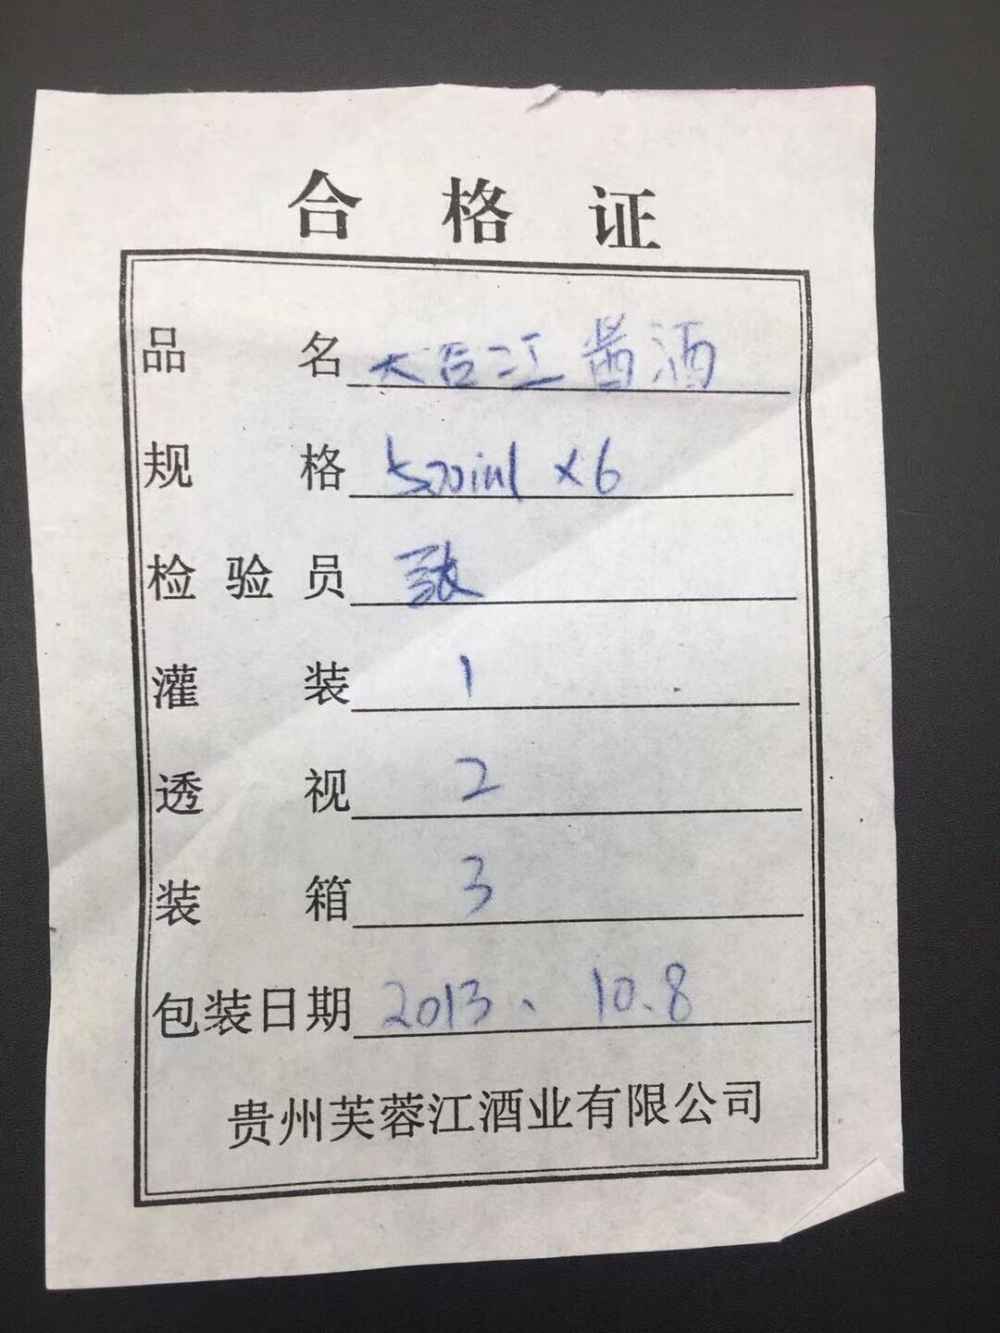 合格证
品名 大合江酱酒
规格 500ml×6
检验员
灌装 1
透视 2
装箱 3
包装日期 2013、10.8
贵州芙蓉江酒业有限公司